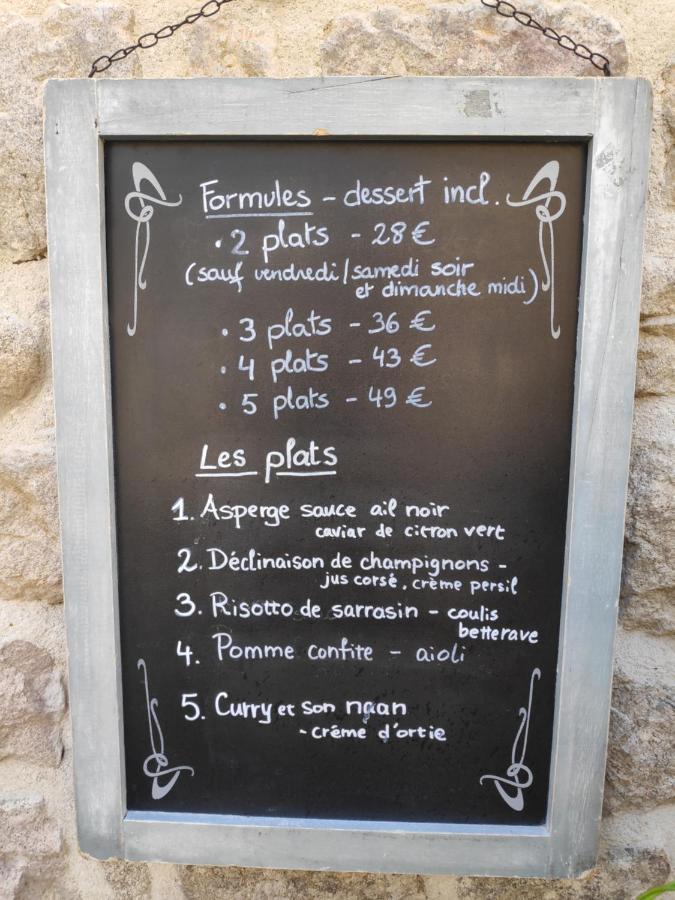 Formules - dessert incl.
• 2 plats - 28 €
(sauf vendredi / samedi soir
et dimanche midi)
• 3 plats - 36 €
• 4 plats - 43 €
• 5 plats - 49 €
Les plats
1. Asperge sauce ail noir
caviar de citron vert
2. Déclinaison de champignons -
jus corsé, crème persil
3. Risotto de sarrasin - coulis
betterave
4. Pomme confite - aioli
5. Curry et son naan
- créme d'ortie